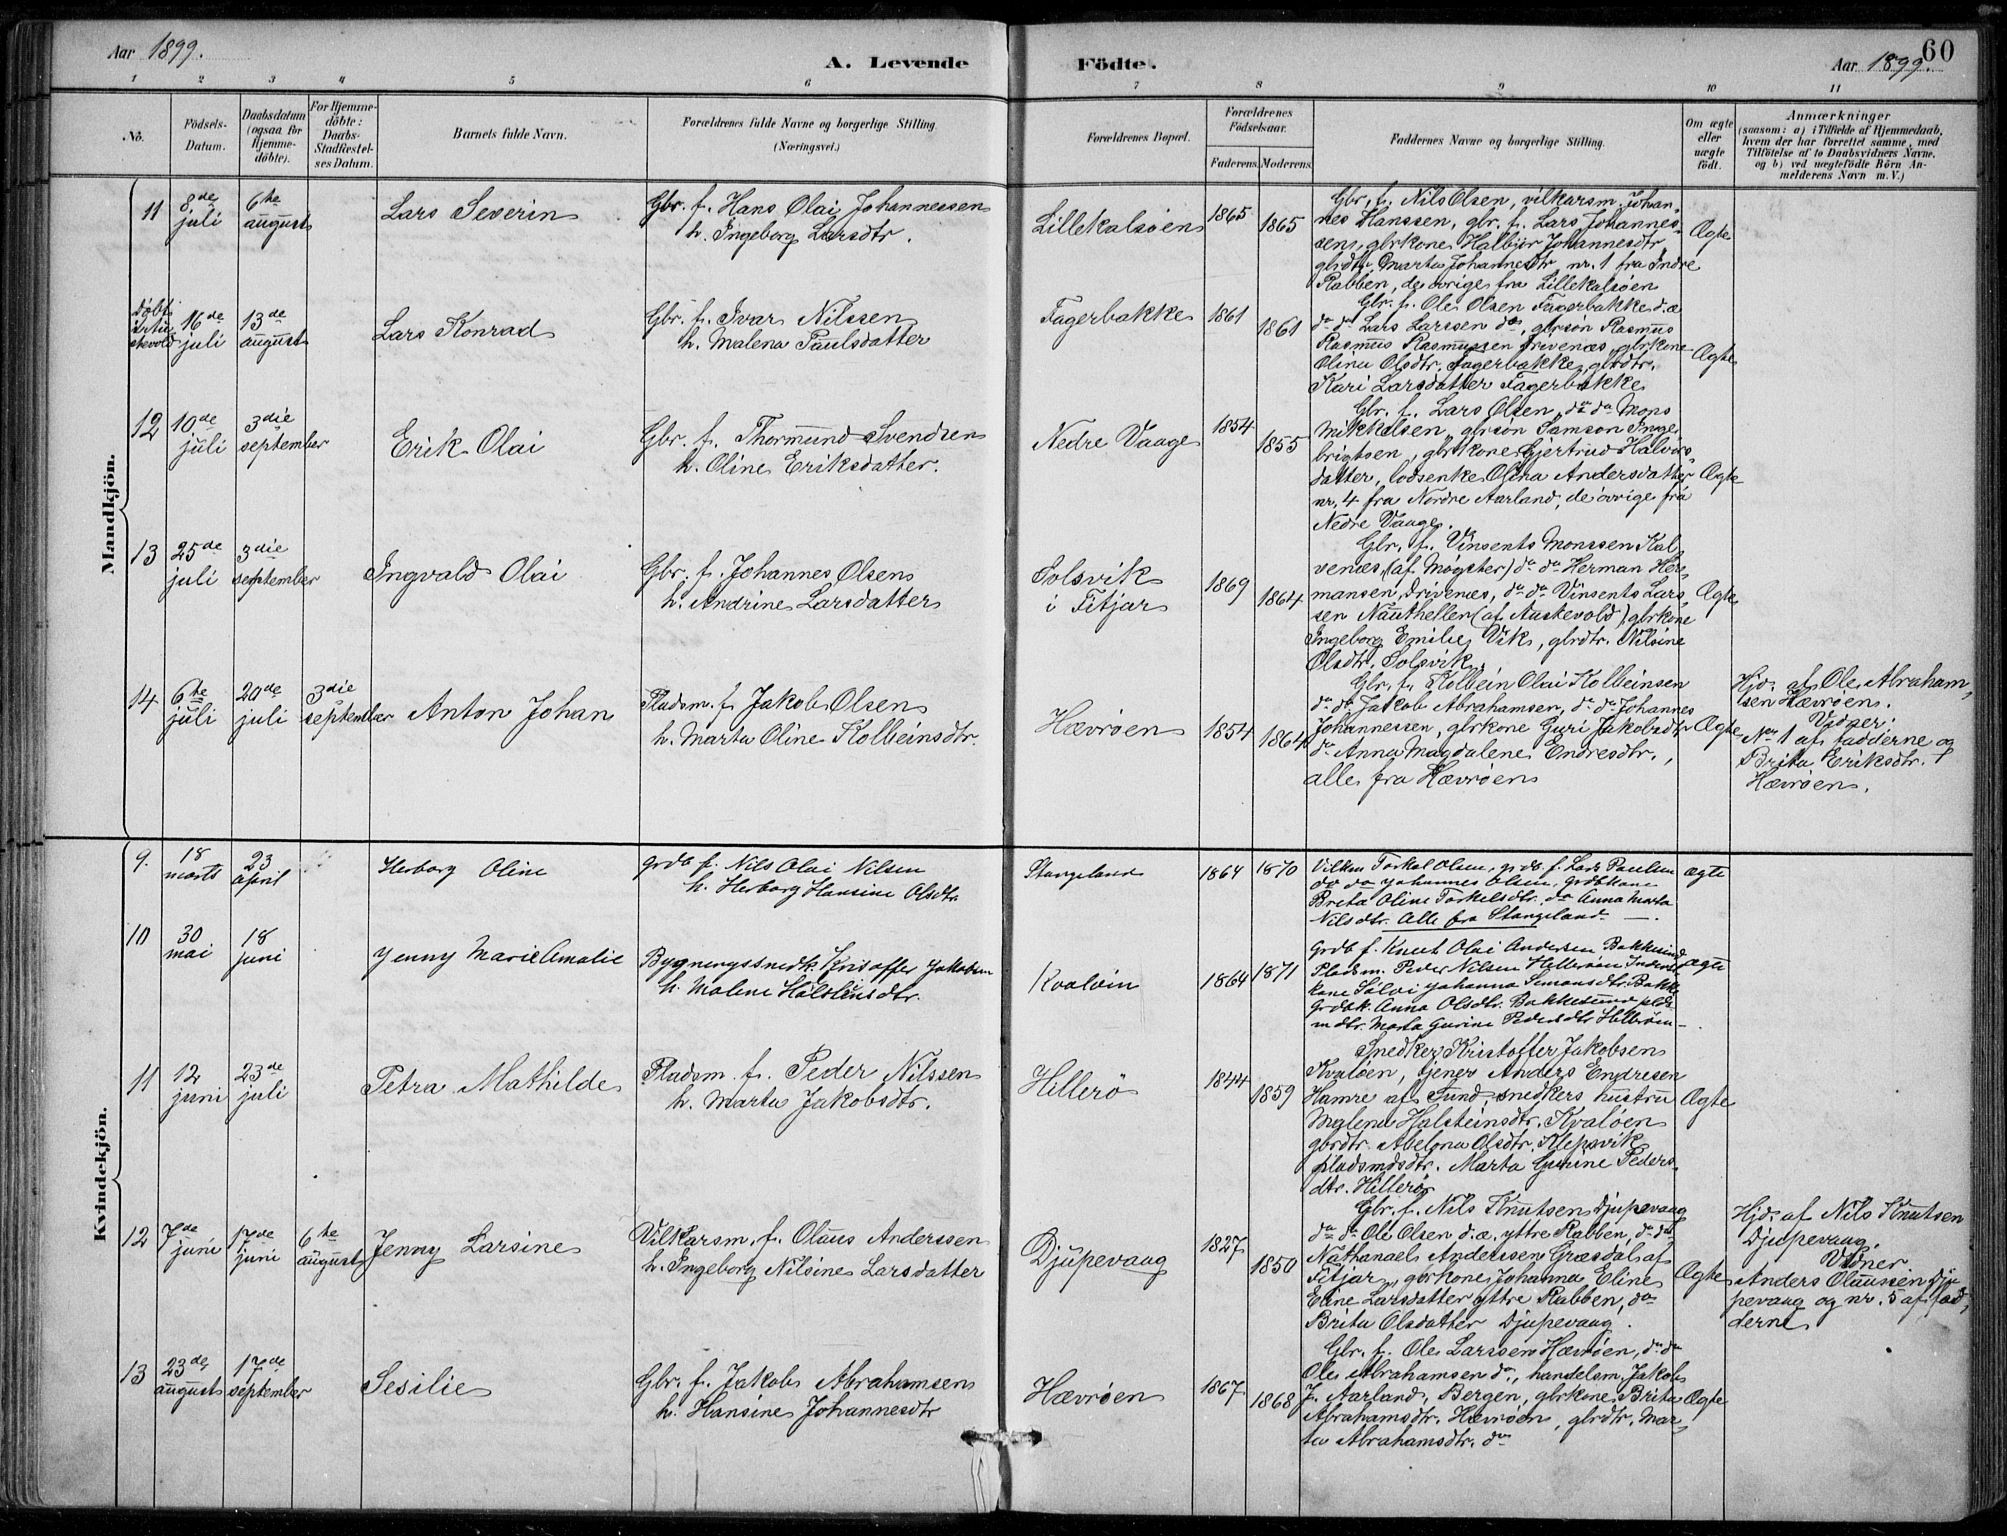 Aar 1899.
A. Levende
Födte.
Aar 1899.
60
1 2 3 4 5 6 7 8 9 10 11
Nö.
Födsels-
Datum.
Daabsdatum
(ogsaa for
Hjemme-
döbte).
For Hjemme-
döbte:
Daabs-
Stadfæstel-
ses Datum.
Barnets fulde Navn.
Forældrenes fulde Navne og borgerlige Stilling
(Næringsvei.)
Forældrenes Bopæl.
Forældrenes
Födselsaar.
Faderens. Moderens.
Faddernes Navne og borgerlige Stilling.
Om ægte
eller
uægte
födt.
Anmærkninger
(saasom: a) i Tilfælde af Hjemmedaab,
hvem der har forrettet samme, med
Tilföielse af to Daabsvidners Navne,
og b) ved uægtefödte Börn An-
melderens Navn m. V.)
Mandkjön.
11
8de
juli
6te
august
Lars Severin
Gbr. f. Hans Olai Johannessen
h. Ingeborg Larsdtr.
Lillekalsøen
1865
1865
Gbr. f. Nils Olsen, vilkarsm. Johan-
nes Hanssen, gbr. f. Lars Johannes-
sen, gbrkone Halbjør Johannesdtr,
gbrdtr. Marta Johannesdtr, nr. 1 fra Indre
Rabben, de øvrige fra Lillekalsøen
Ægte
døbt
16de
juli
13de
august
Lars Konrad
Gbr. f. Ivar Nilssen
h. Malena Paulsdatter
Fagerbakke
1861
1861
Gbr. f. Ole Olsen Fagerbakke d.æ
do do Lars Larssen do, gbrsøn Rasmus
Rasmus Rasmussen Drivenæs, gbrkone
Olina Olsdtr. Fagerbakke, gbrdtr.
Kari Larsdatter Fagerbakke
Ægte
12
10de
juli
3die
september
Erik Olai
Gbr. f. Thormund Svendsen
h. Oline Eriksdatter.
Nedre Vaage
1854
1855
Gbr. f. Lars Olsen, do do Mons
Mikkelsen, gbrsøn Samson Inge-
brigtsen, gbrkone Gjertrud Halvors-
datter, lodsenke Olina Andersdatter
nr. 4 fra Nordre Aarland, de øvrige fra
Nedre Vaage.
Ægte
13
25de
juli
3die
september
Ingvald Olai
Gbr. f. Johannes Olsen
h. Andrine Larsdatter
Solsvik
i Fitjar
1869
1864
Gbr. f. Vinsents Monssen Kal-
venæs, (af Møgster) do do Herman Her-
mansen Drivenæs, do do Vinsents Lars-
sen Nautheller (af Austevold), gbrkone
Ingeborg Emilie Vik, gbrdtr. Nilsine
Olsdtr. Solsvik.
Ægte
14
6te
juli
20de
juli
3die
september
Anton Johan
Pladsm. f. Jakob Olsen
h. Marta Oline Kolbeinsdtr.
Hævrøen
1854
1864
Gbr. f. Kolbein Olai Kolbeinsen
do do Jakob Abrahamsen, do do Johannes
Johannessen, gbrkone Guri Jakobsdtr
do Anna Magdalene Endresdtr.,
alle fra Hævrøen
Ægte
Hjd. af Ole Abraham-
sen Hævrøen.
Vidner:
No 1 af fadderne og
Brita Eriksdtr.
Hævrøen.
Kvindekjön.
9.
18
marts
23
april
Herborg Oline
Grdb f. Nils Olai Nilsen
h. Herborg Hansine Olsdtr.
Stangeland
1864
1870
Vilkm Torkel Olsen, grdb. f. Lars Paulsen
do do Johannes Olsen, Grdbkone
Brita Oline Torkelsdtr. do Anna Marta
Nilsdtr. Alle fra Stangeland
ægte
10
30
mai
18
juni
Jenny Marie Amalie
Bygningssnedk. Kristoffer Jakobsen
h. Malene Halstensdtr.
Kvaløin
1864
1871
Grdb f. Knut Olai Andersen Bakkesund
Pladsm. Peder Nilsen Hillerøen
kone Sølvi Johanna Simonsdtr. Bakke
Grdbk. Anna Olsdtr. Bakkesund plds-
mdtr. Marta Gurine Pedersdtr Hillerøen
ægte
11
12
juni
23de
juli
Petra Mathilde
Pladsm. f. Peder Nilssen
h. Marta Jakobsdtr.
Hillerø
1844
1859
Snedker Kristoffer Jakobsen
Kvaløen, tjener Anders Endresen
Hamre af Sund, snedkers hustru
Malena Halsteinsdtr. Kvaløen
gbrdtr. Abelona Olsdtr. Klepsvik
pladsmdsdtr. Marta Gurine Peders-
dtr. Hillerø
Ægte
12
7de
juni
17de
juni
6te
august
Jenny Larsine
Vilkarsm. f. Olaus Anderssen
h. Ingeborg Nilsine Larsdatter
Djupevaag
1827
1850
Gbr. f. Nils Knutsen Djupevaag
do do Ole Olsen d.æ. yttre Rabben, do do
Nathanael Anderssen Græsdal af
Fitjar, gbrkone Johanna Eline
Eline Larsdatter yttre Rabben, do
Brita Olsdatter Djupevaag.
Ægte
Hjd. af Nils Knutsen
Djupevaag.
Vidner
Anders Olaussen Dju-
pevaag og nr. 5 af fad-
derne
13
23de
august
17de
september
Sesilie
Gbr. f. Jakob Abrahamsen
h. Hansine Johannesdtr
Hævrøen
1867
1868
Gbr. f. Ole Larssen Hævrøen, do do
Ole Abrahamsen do, handelsm. Jakob
J. Aarland, Bergen, gbrkone Brita
Abrahamsdtr. Hævrøen, gbrdtr. Mar-
ta Abrahamsdtr. do
Ægte